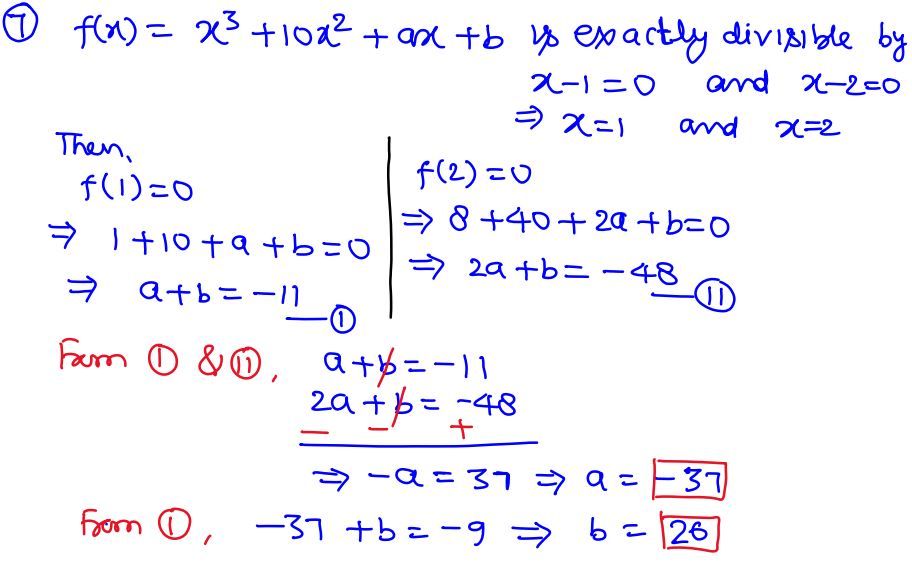 ⑦ f(x) = x³ + 10x² + ax + b is exactly divisible by
x-1 = 0 and x-2=0
⇒ x=1 and x=2
Then,
f(1)=0
⇒ 1+10+a+b=0
⇒ a+b = -11 —①
f(2)=0
⇒ 8+40+2a+b=0
⇒ 2a+b = -48 —⑪
From ① & ⑪, a+b = -11
2a+b = -48
- - +
⇒ -a = 37 ⇒ a = -37
From ①, -37 +b = -9 ⇒ b = 26